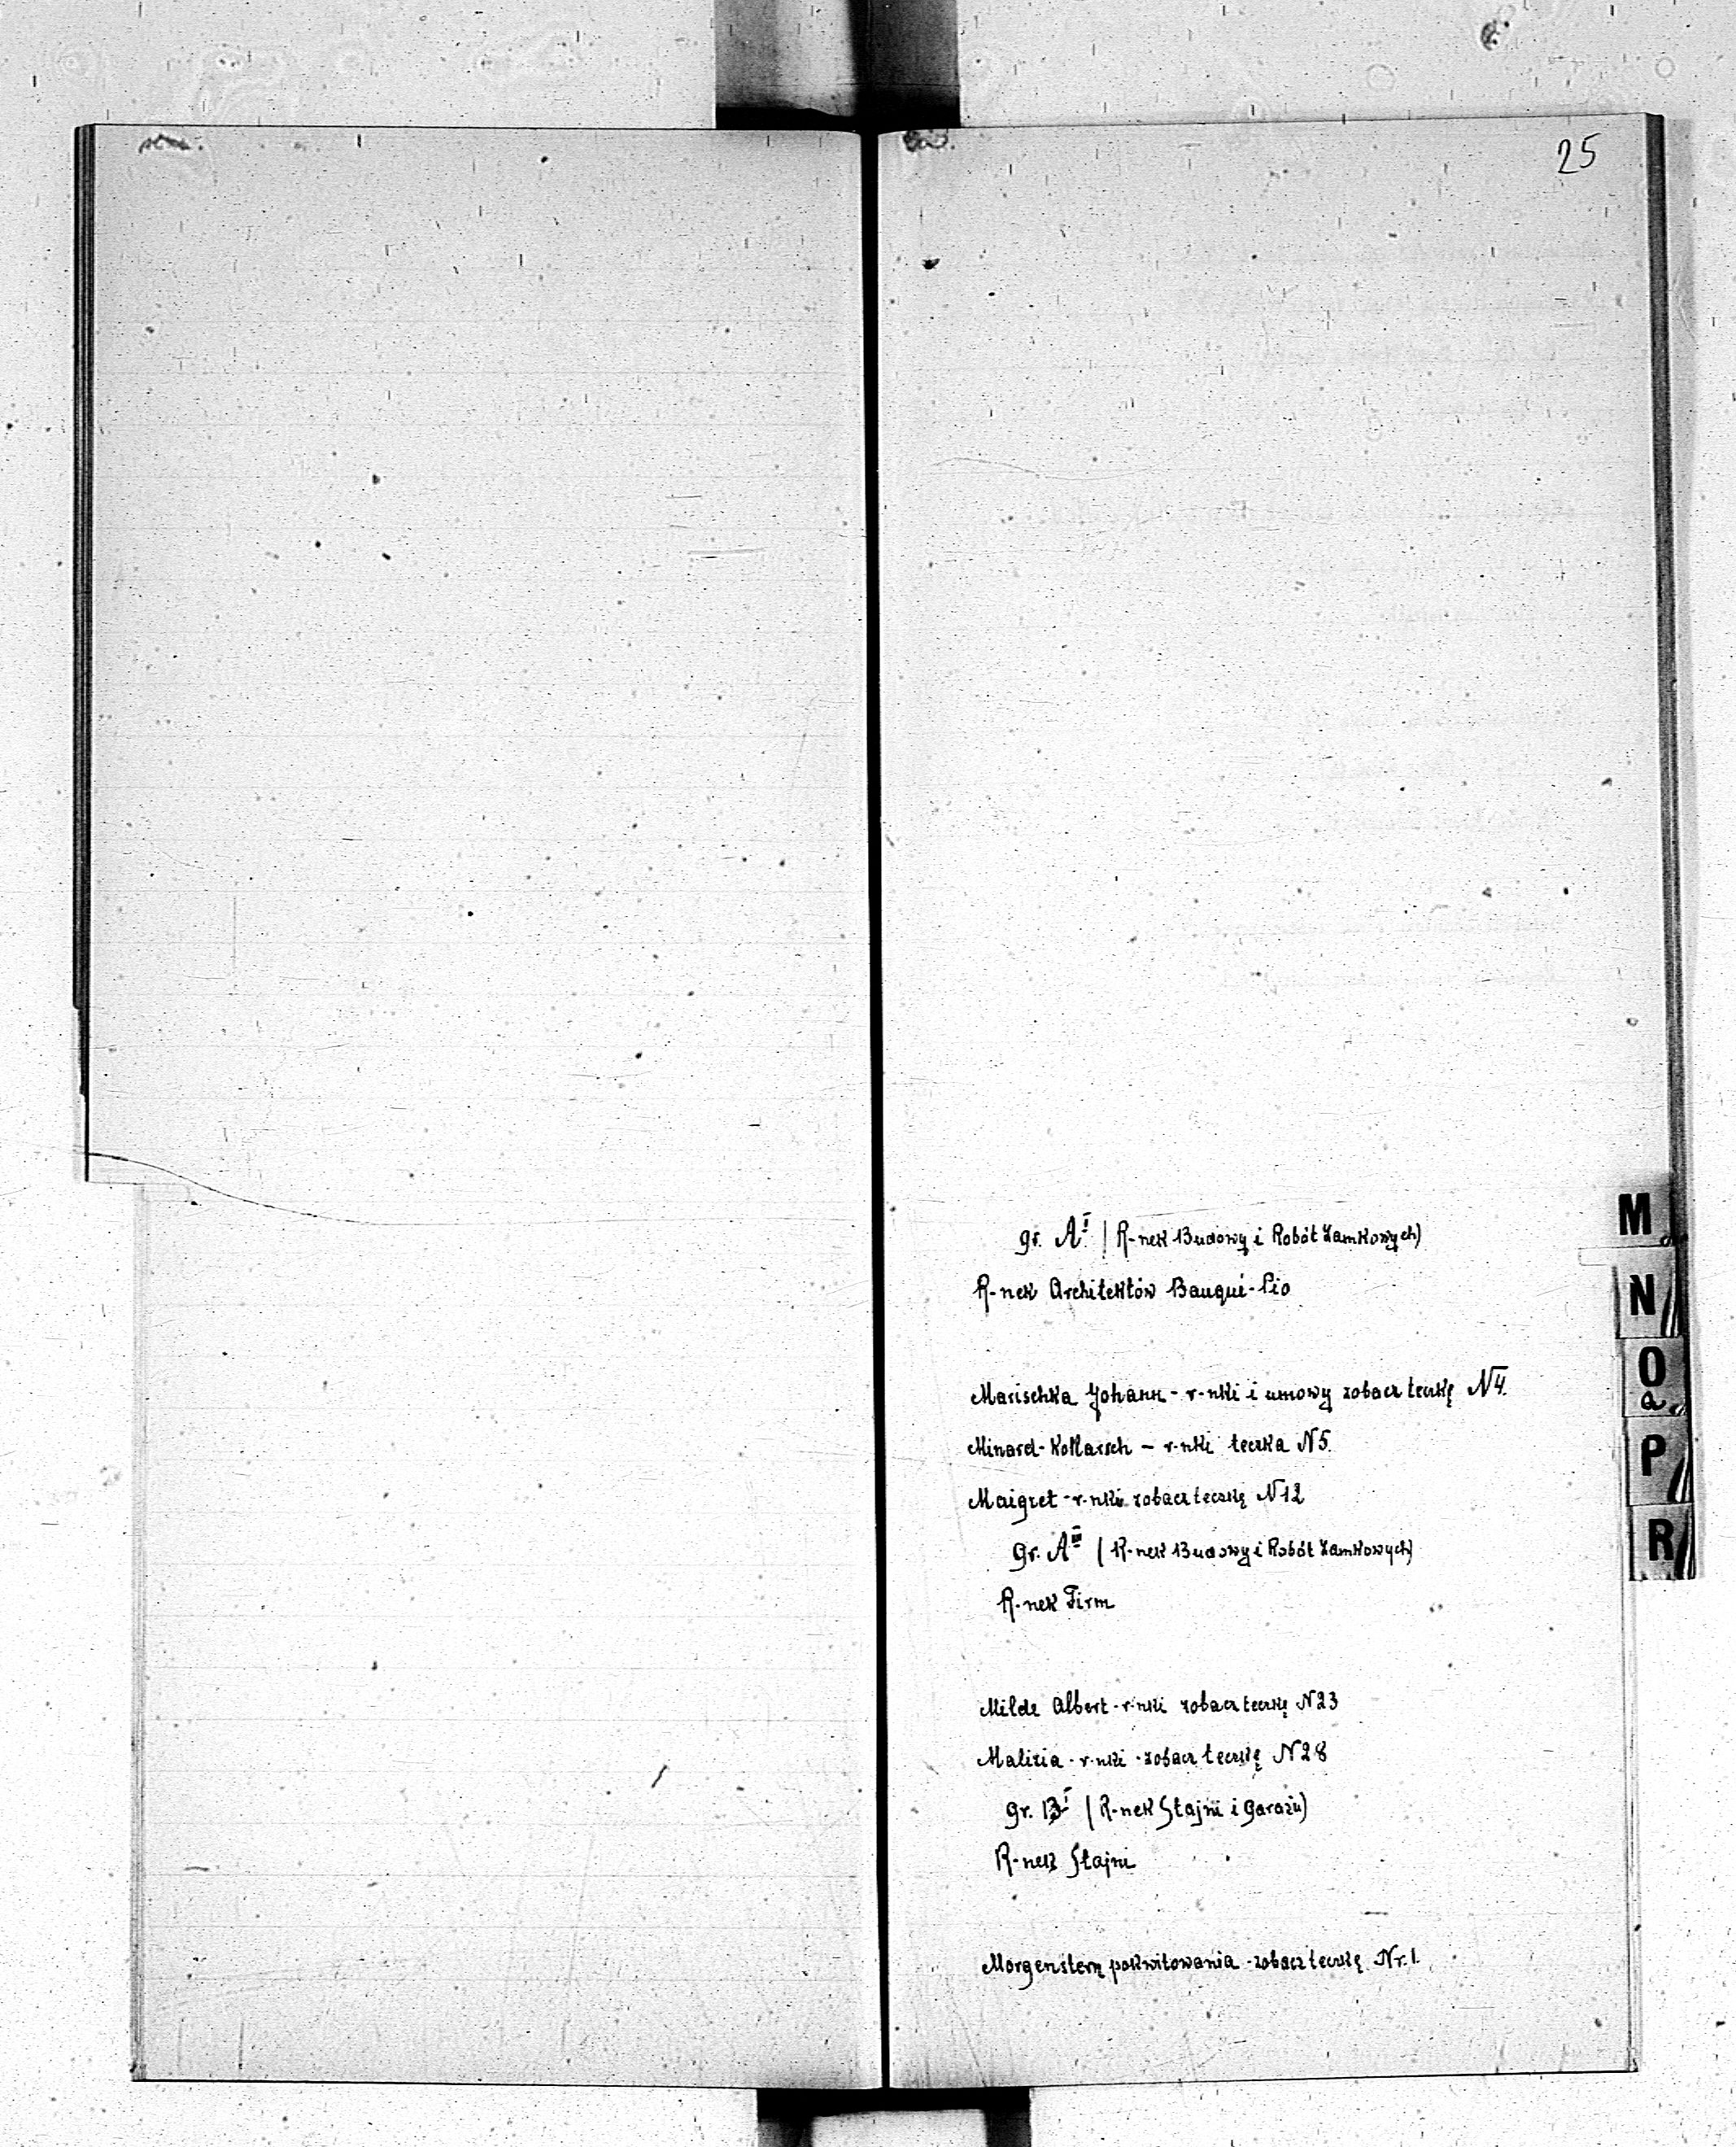 25
gr. A I (R-nek Budowy i Robót Zamkowych)
R-nek Architektów Bauqué-Pio
Marischka Johann - r-nki i umowy zobacz teczkę N 4.
Minard-Kollarsch - r-nki teczka N 5.
Maigret - r-nki zobacz teczkę N 12
gr. A III (R-nek Budowy i Robót Zamkowych)
R-nek Firm
Milde Albert - r-nki zobacz teczkę N 23
Malizia - r-nki - zobacz teczkę N 28
gr. B I (R-nek Stajni i Garażu)
R-nek Stajni
Morgenstern pokwitowania - zobacz teczkę Nr. 1.
M
N
O
Q
P
R